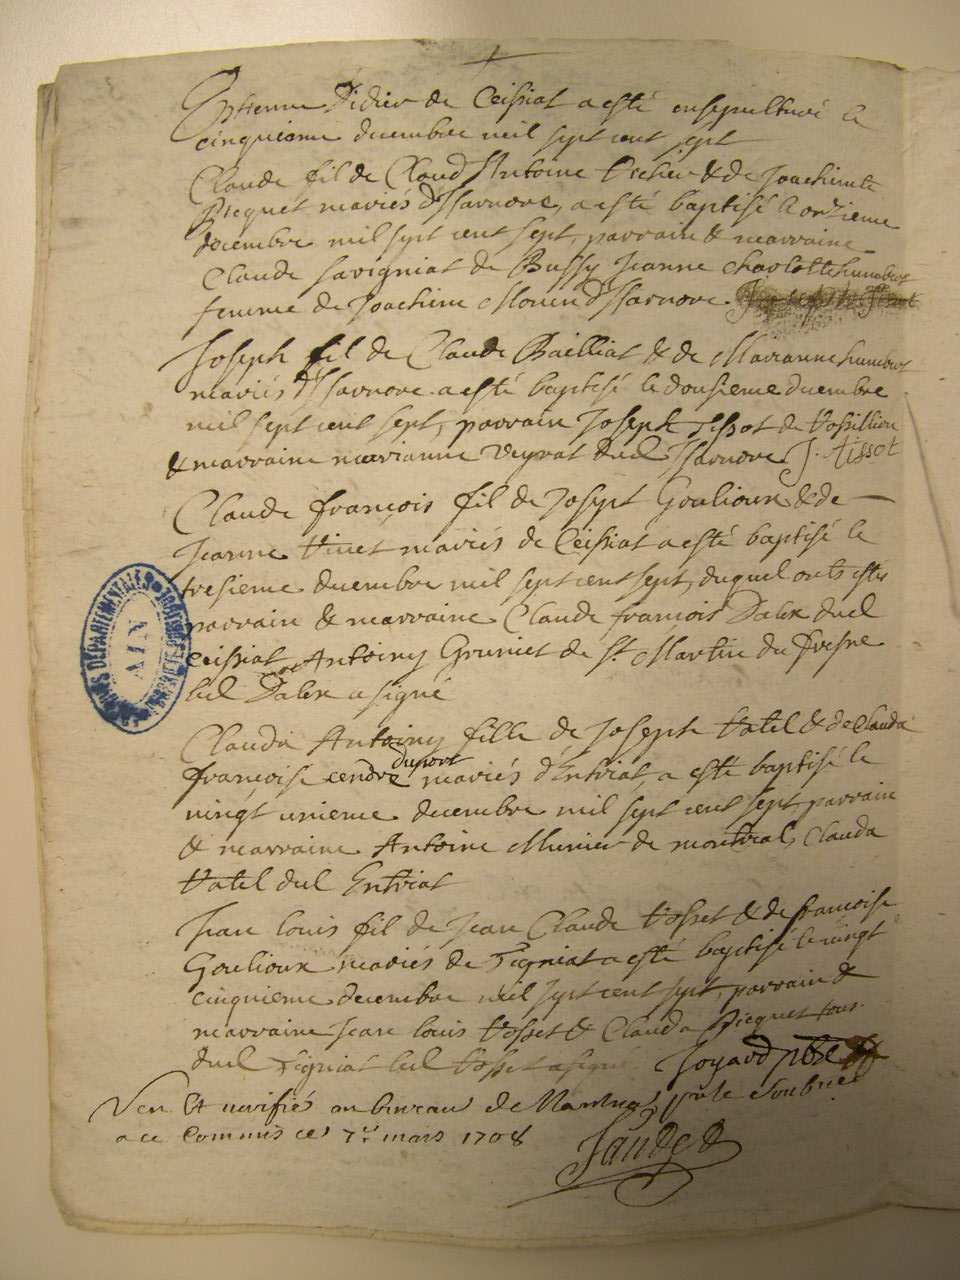 Estienne Didier de Ceissiat a esté ensepulturé le
cinquieme decembre mil sept cent sept
Claude fil de Claud Antoine & de Joachimte
Picquet mariés d'Isarnore, a esté baptisé le onzieme
decembre mil sept cent sept, parrain & marraine
Claude Savigniat de Bussy Jeanne Charlotte humbert
femme de Joachim Monin d'Isarnore.
Joseph fil de Claude Bailliat & de Marianne humbert
mariés d'Isarnore a esté baptisé le dousieme decembre
mil sept cent sept, parrain Joseph Tissot de Vossillieu
& marraine marianne veyrat dud Isarnore J. Tissot
Claude françois fil de Joseph Goulioux & de
Jeanne Vinet mariés de Ceissiat a esté baptisé le
tresieme decembre mil sept cent sept, duquel onts estés
parrain & marraine Claude françois Dalex dud
Ceissiat Antoiny Grunict de St. Martin du fresne
led Dalex a signé
Clauda Antoiny fille de Joseph Vatel & de Clauda
françoise cendre duport mariés d'Entriat, a esté baptisé le
vingt unieme decembre mil sept cent sept parrain
& marraine Antoine Munier de montreal, Clauda
Vatel dud Entriat
Jean louis fil de Jean Claude Vosset & de françoise
Goulioux mariés de Tigniat a esté baptisé le vingt
cinquieme decembre mil sept cent sept, parrain &
marraine Jean louis Vosset & Clauda Picquet tous
dud Tigniat led Vosset a signé Joyard pbre
Veu Et verifiés au bureau de Nantua par le Soubsé
a ce Commis ce 7e mars 1708
ARCHIVES DÉPARTEMENTALES
AIN